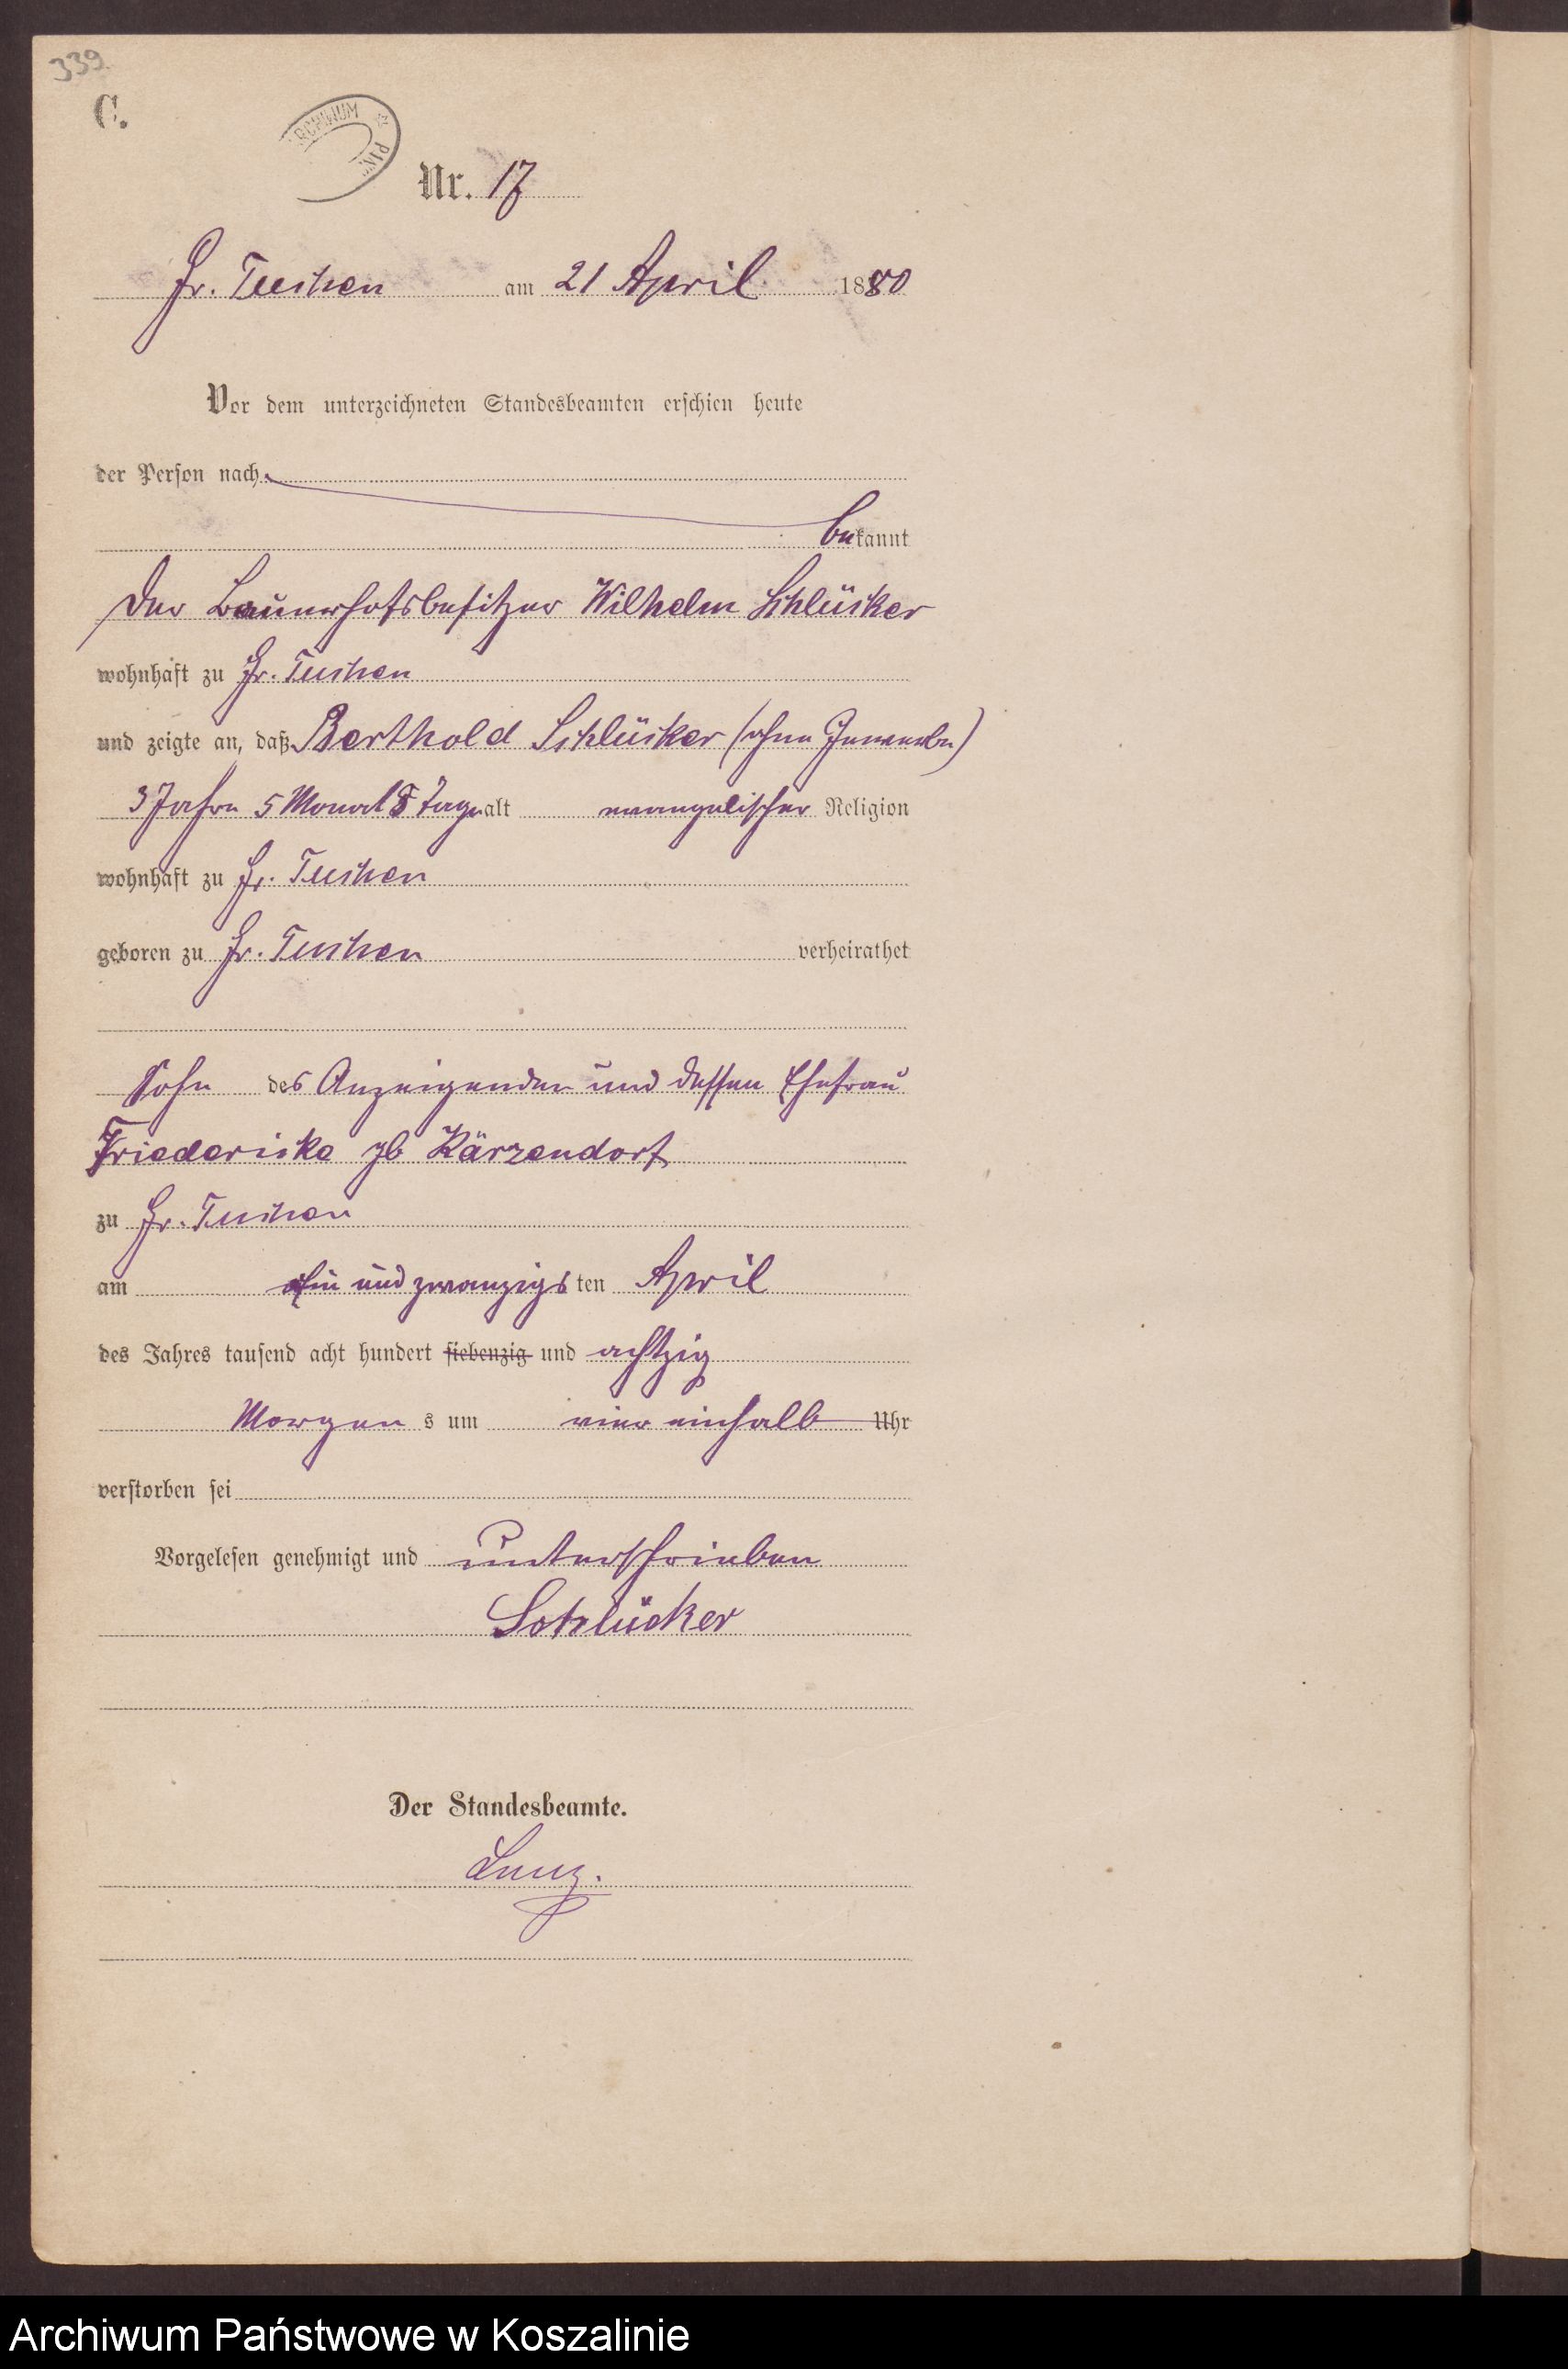 339.
C.
ARCHIWUM
Nr. 17
Gr. Tuchen am 21 April 1880
Vor dem unterzeichneten Standesbeamten erschien heute
der Person nach
bekannt
der Bauerhofsbesitzer Wilhelm Schlücker
wohnhaft zu Gr. Tuchen
und zeigte an, daß Berthold Schlücker (ohne Gewerbe)
3 Jahre 5 Monat 8 Tage alt evangelischer Religion
wohnhaft zu Gr. Tuchen
geboren zu Gr. Tuchen verheirathet
Sohn des Anzeigenden und dessen Ehefrau
Friedericke gb Kärzendorf
zu Gr. Tuchen
am ein und zwanzigsten April
des Jahres tausend acht hundert siebenzig und achtzig
Morgens um vier einhalb Uhr
verstorben sei
Vorgelesen genehmigt und unterschrieben
Schlücker
Der Standesbeamte.
Archiwum Państwowe w Koszalinie